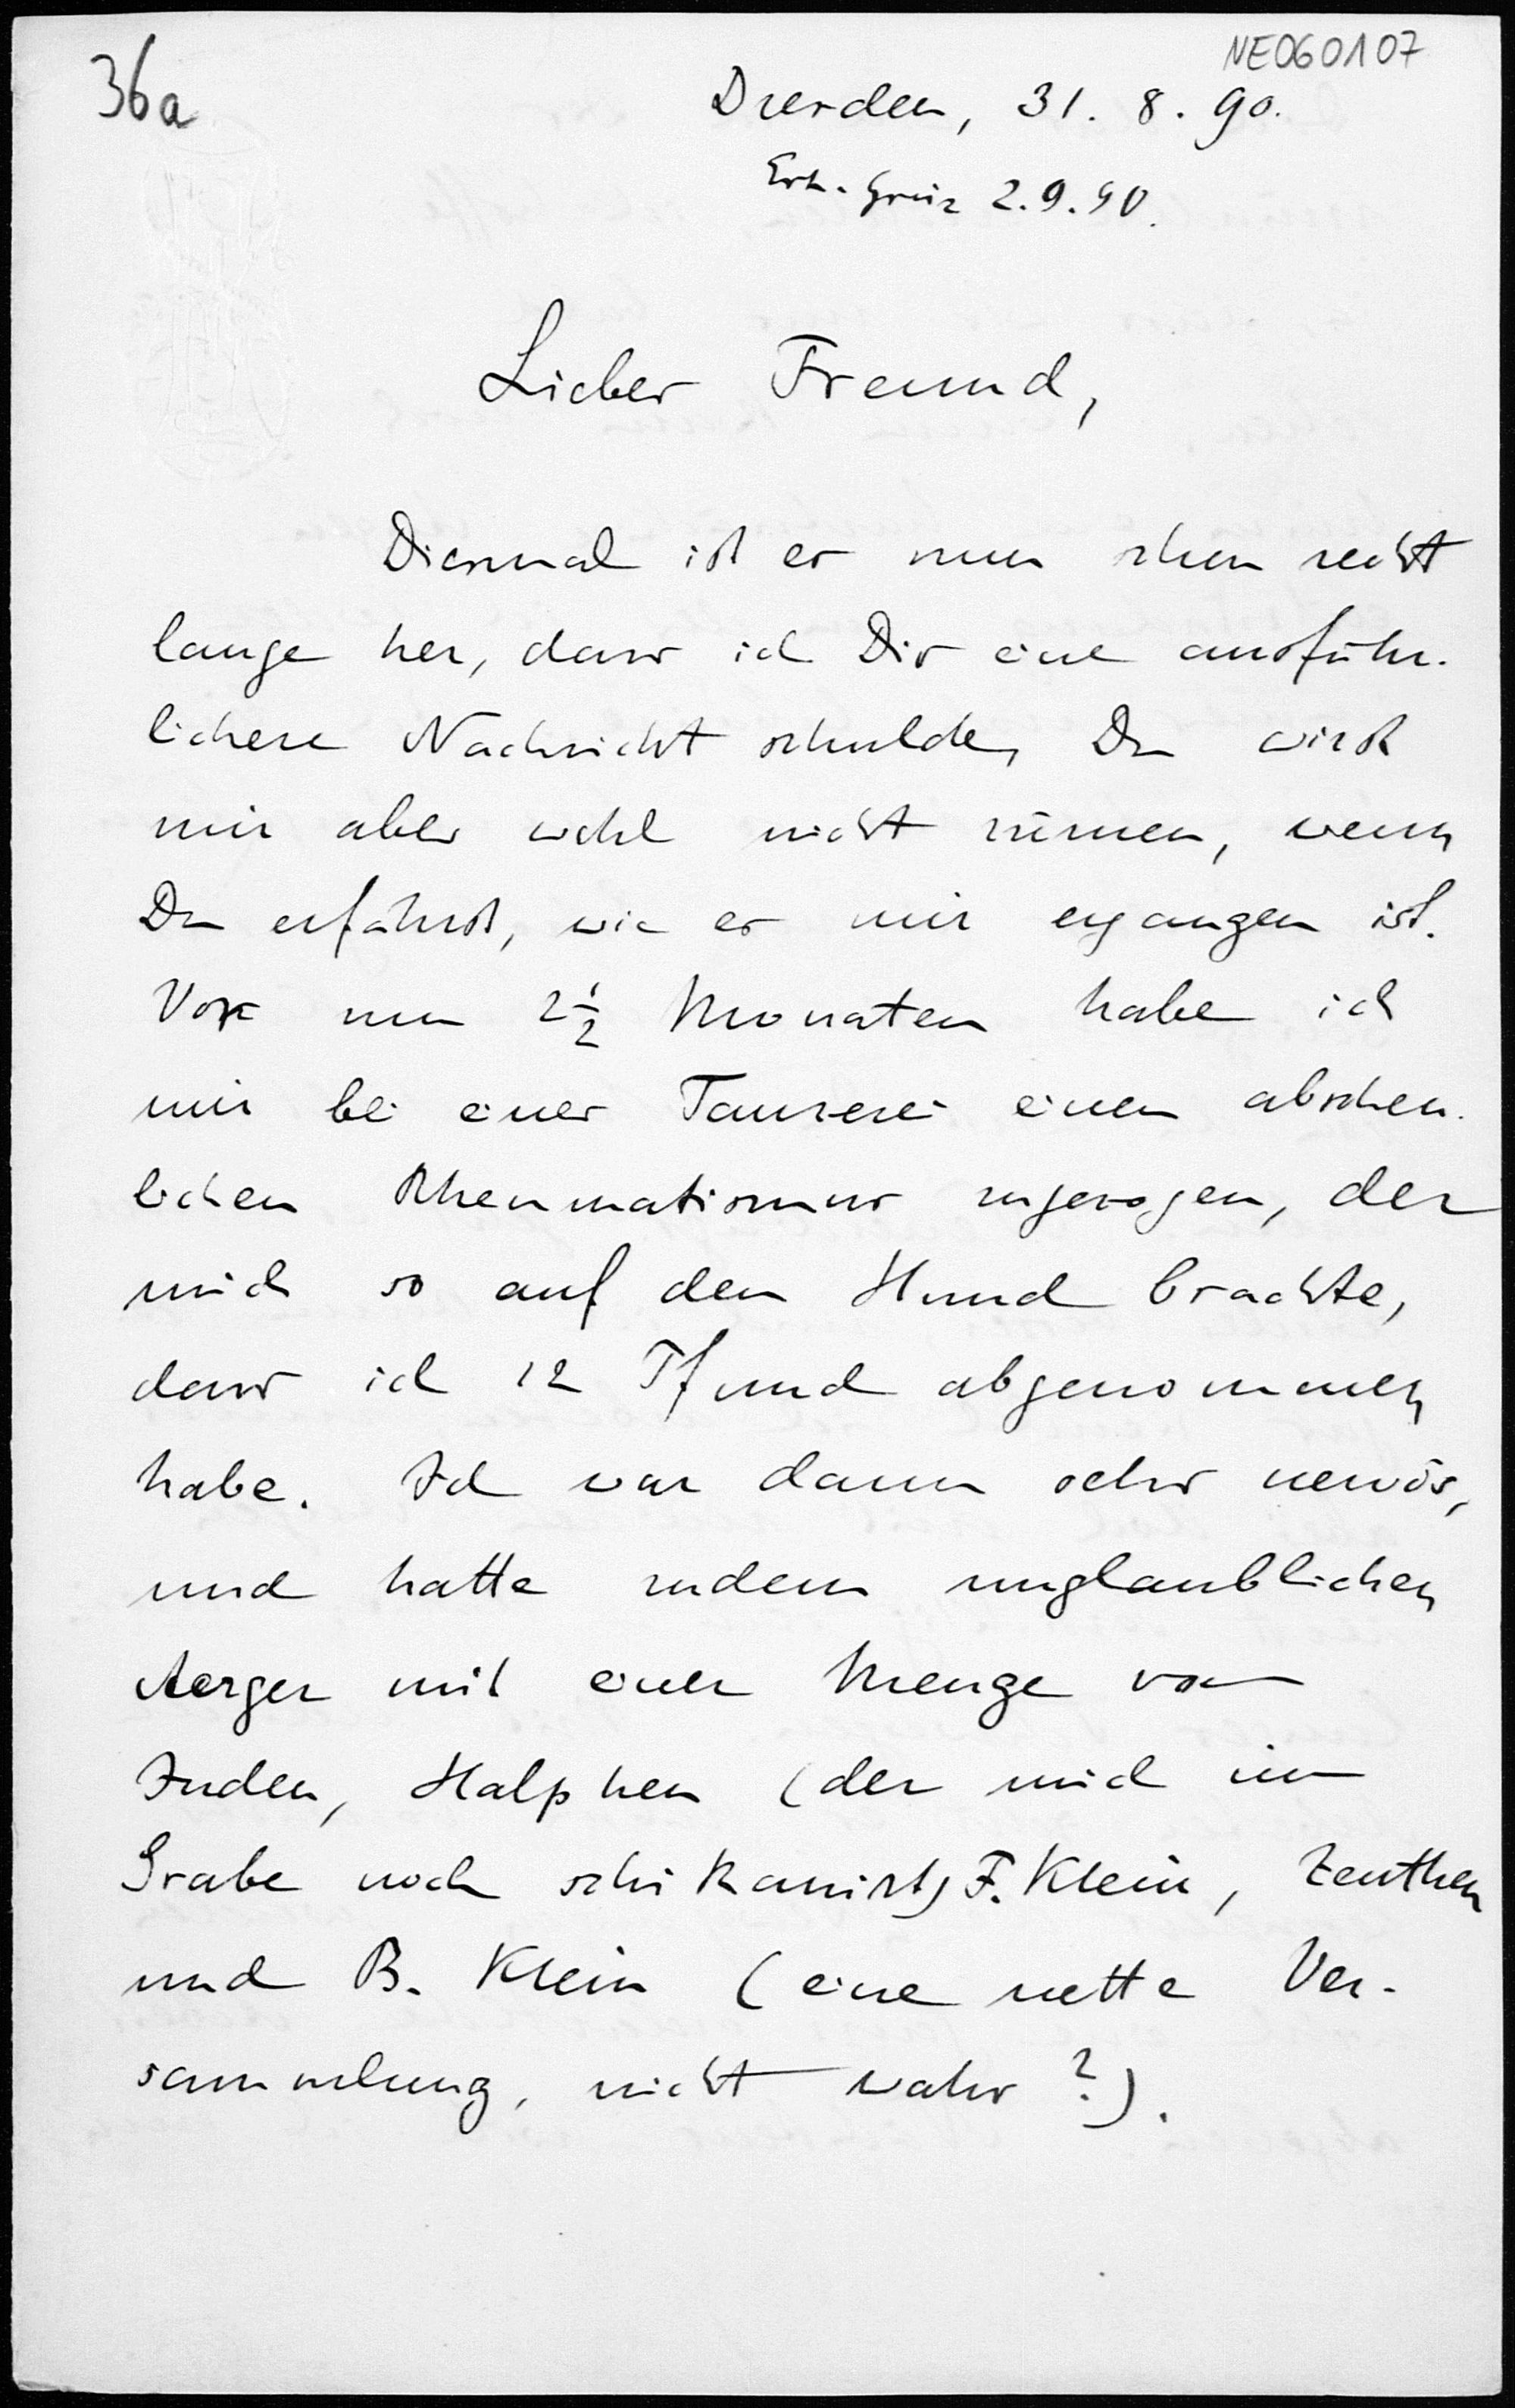 36a
NE060107
Dresden, 31. 8. 90.
Erh. Graz 2.9.90.
Lieber Freund,
Diesmal ist es nun schon recht
lange her, dass ich Dir eine ausführ-
lichere Nachricht schulde, Du wirst
mir aber wohl nicht zürnen, wenn
Du erfährst, wie es mir ergangen ist.
Vor nun 2½ Monaten habe ich
mir bei einer Tanzerei einen abscheu-
lichen Rheumatismus zugezogen, der
mich so auf den Hund brachte,
dass ich 12 Pfund abgenommen
habe. Ich war dann sehr nervös,
und hatte zudem unglaublichen
Aerger mit einer Menge von
Juden, Halphen (der mich im
Grabe noch schikanirt) F. Klein, Zeuthen
und B. Klein (eine nette Ver-
sammlung, nicht wahr?).